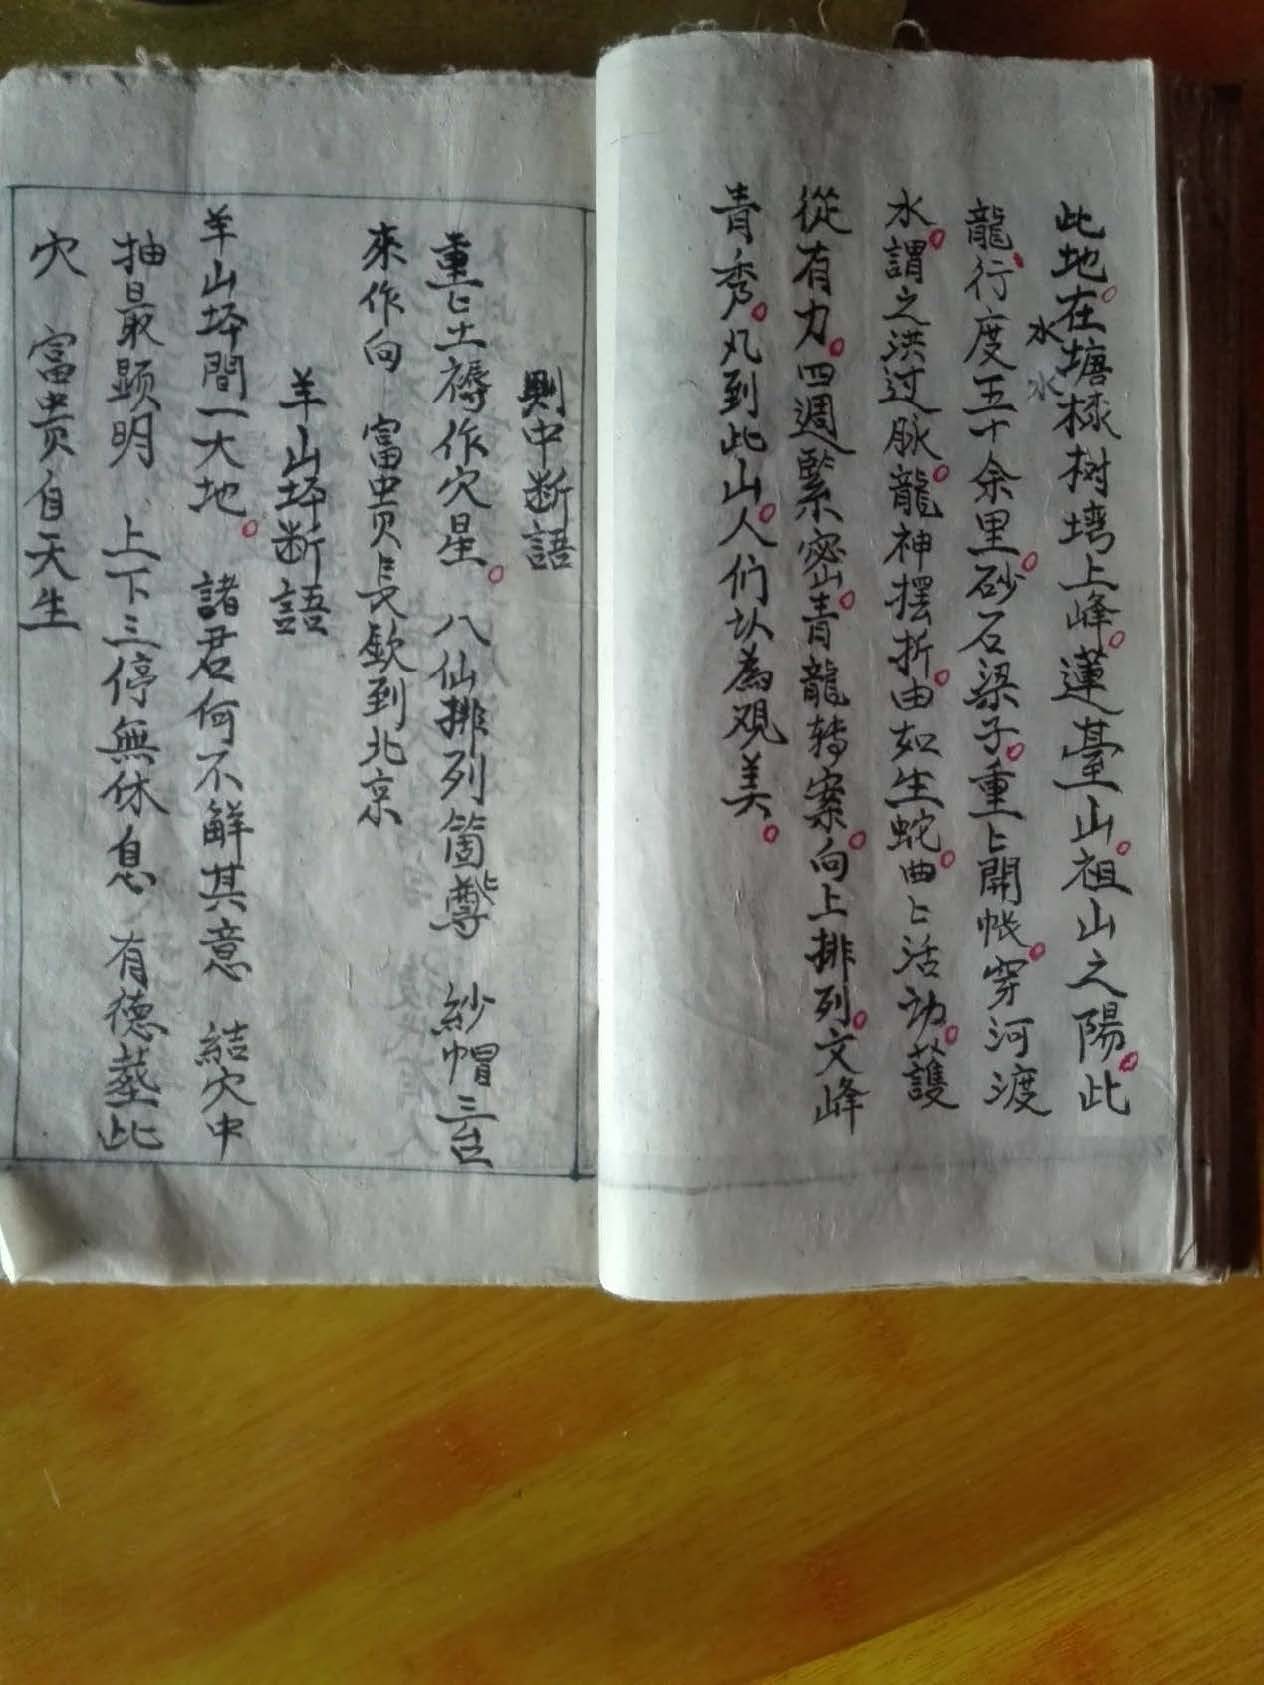 此地。在塘㭐树塆上峰。蓮臺山。祖山之陽。此
水水
龍。行度五十余里。砂石梁子。重〻開帐。穿河渡
水。謂之洪过脉。龍神摆折。由如生蛇。曲〻活动。護
從有力。四週緊密。青龍转案。向上排列。文峰
青秀。凡到此山。人们以為观美。
則中断語
重〻土褥作穴星。八仙排列箇〻尊 紗帽三台
來作向 富贵長欽到北京
羊山坪断語
羊山坪間一大地。 諸君何不解其意 結穴中
抽最顕明 上下三停無休息 有德塟此
穴 富贵自天生